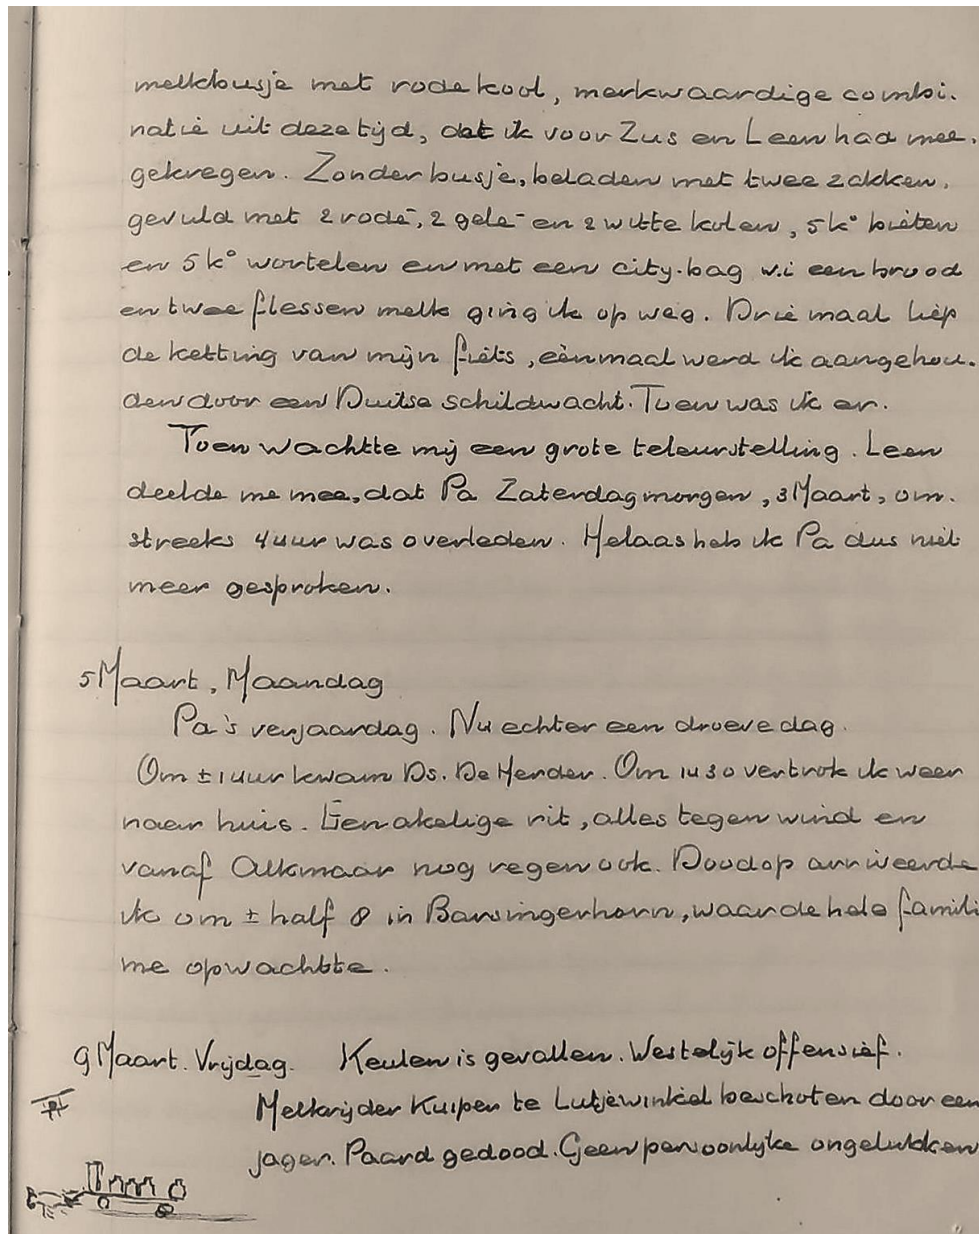 melkbusje met rode kool, merkwaardige combi-
natie uit deze tijd, dat ik voor Zus en Leen had mee-
gekregen. Zonder busje, beladen met twee zakken,
gevuld met 2 rode-, 2 gele- en 2 witte kolen, 5 k° bieten
en 5 k° wortelen en met een city-bag w.i een brood
en twee flessen melk ging ik op weg. Drie maal liep
de ketting van mijn fiets, éénmaal werd ik aangehou-
den door een Duitse schildwacht. Toen was ik er.
Toen wachtte mij een grote teleurstelling. Leen
deelde me mee, dat Pa Zaterdagmorgen, 3 Maart, om-
streeks 4 uur was overleden. Helaas heb ik Pa dus niet
meer gesproken.
5 Maart, Maandag
Pa's verjaardag. Nu echter een droeve dag.
Om ± 1 uur kwam Ds. De Herder. Om 1430 vertrok ik weer
naar huis. Een akelige rit, alles tegen wind en
vanaf Alkmaar nog regen ook. Doodop arriveerde
ik om ± half 8 in Barsingerhorn, waar de hele famili
me opwachtte.
9 Maart. Vrijdag. Keulen is gevallen. Westelijk offensief.
Melkrijder Kuiper te Lutjewinkel beschoten door een
jager. Paard gedood. Geen persoonlijke ongelukken